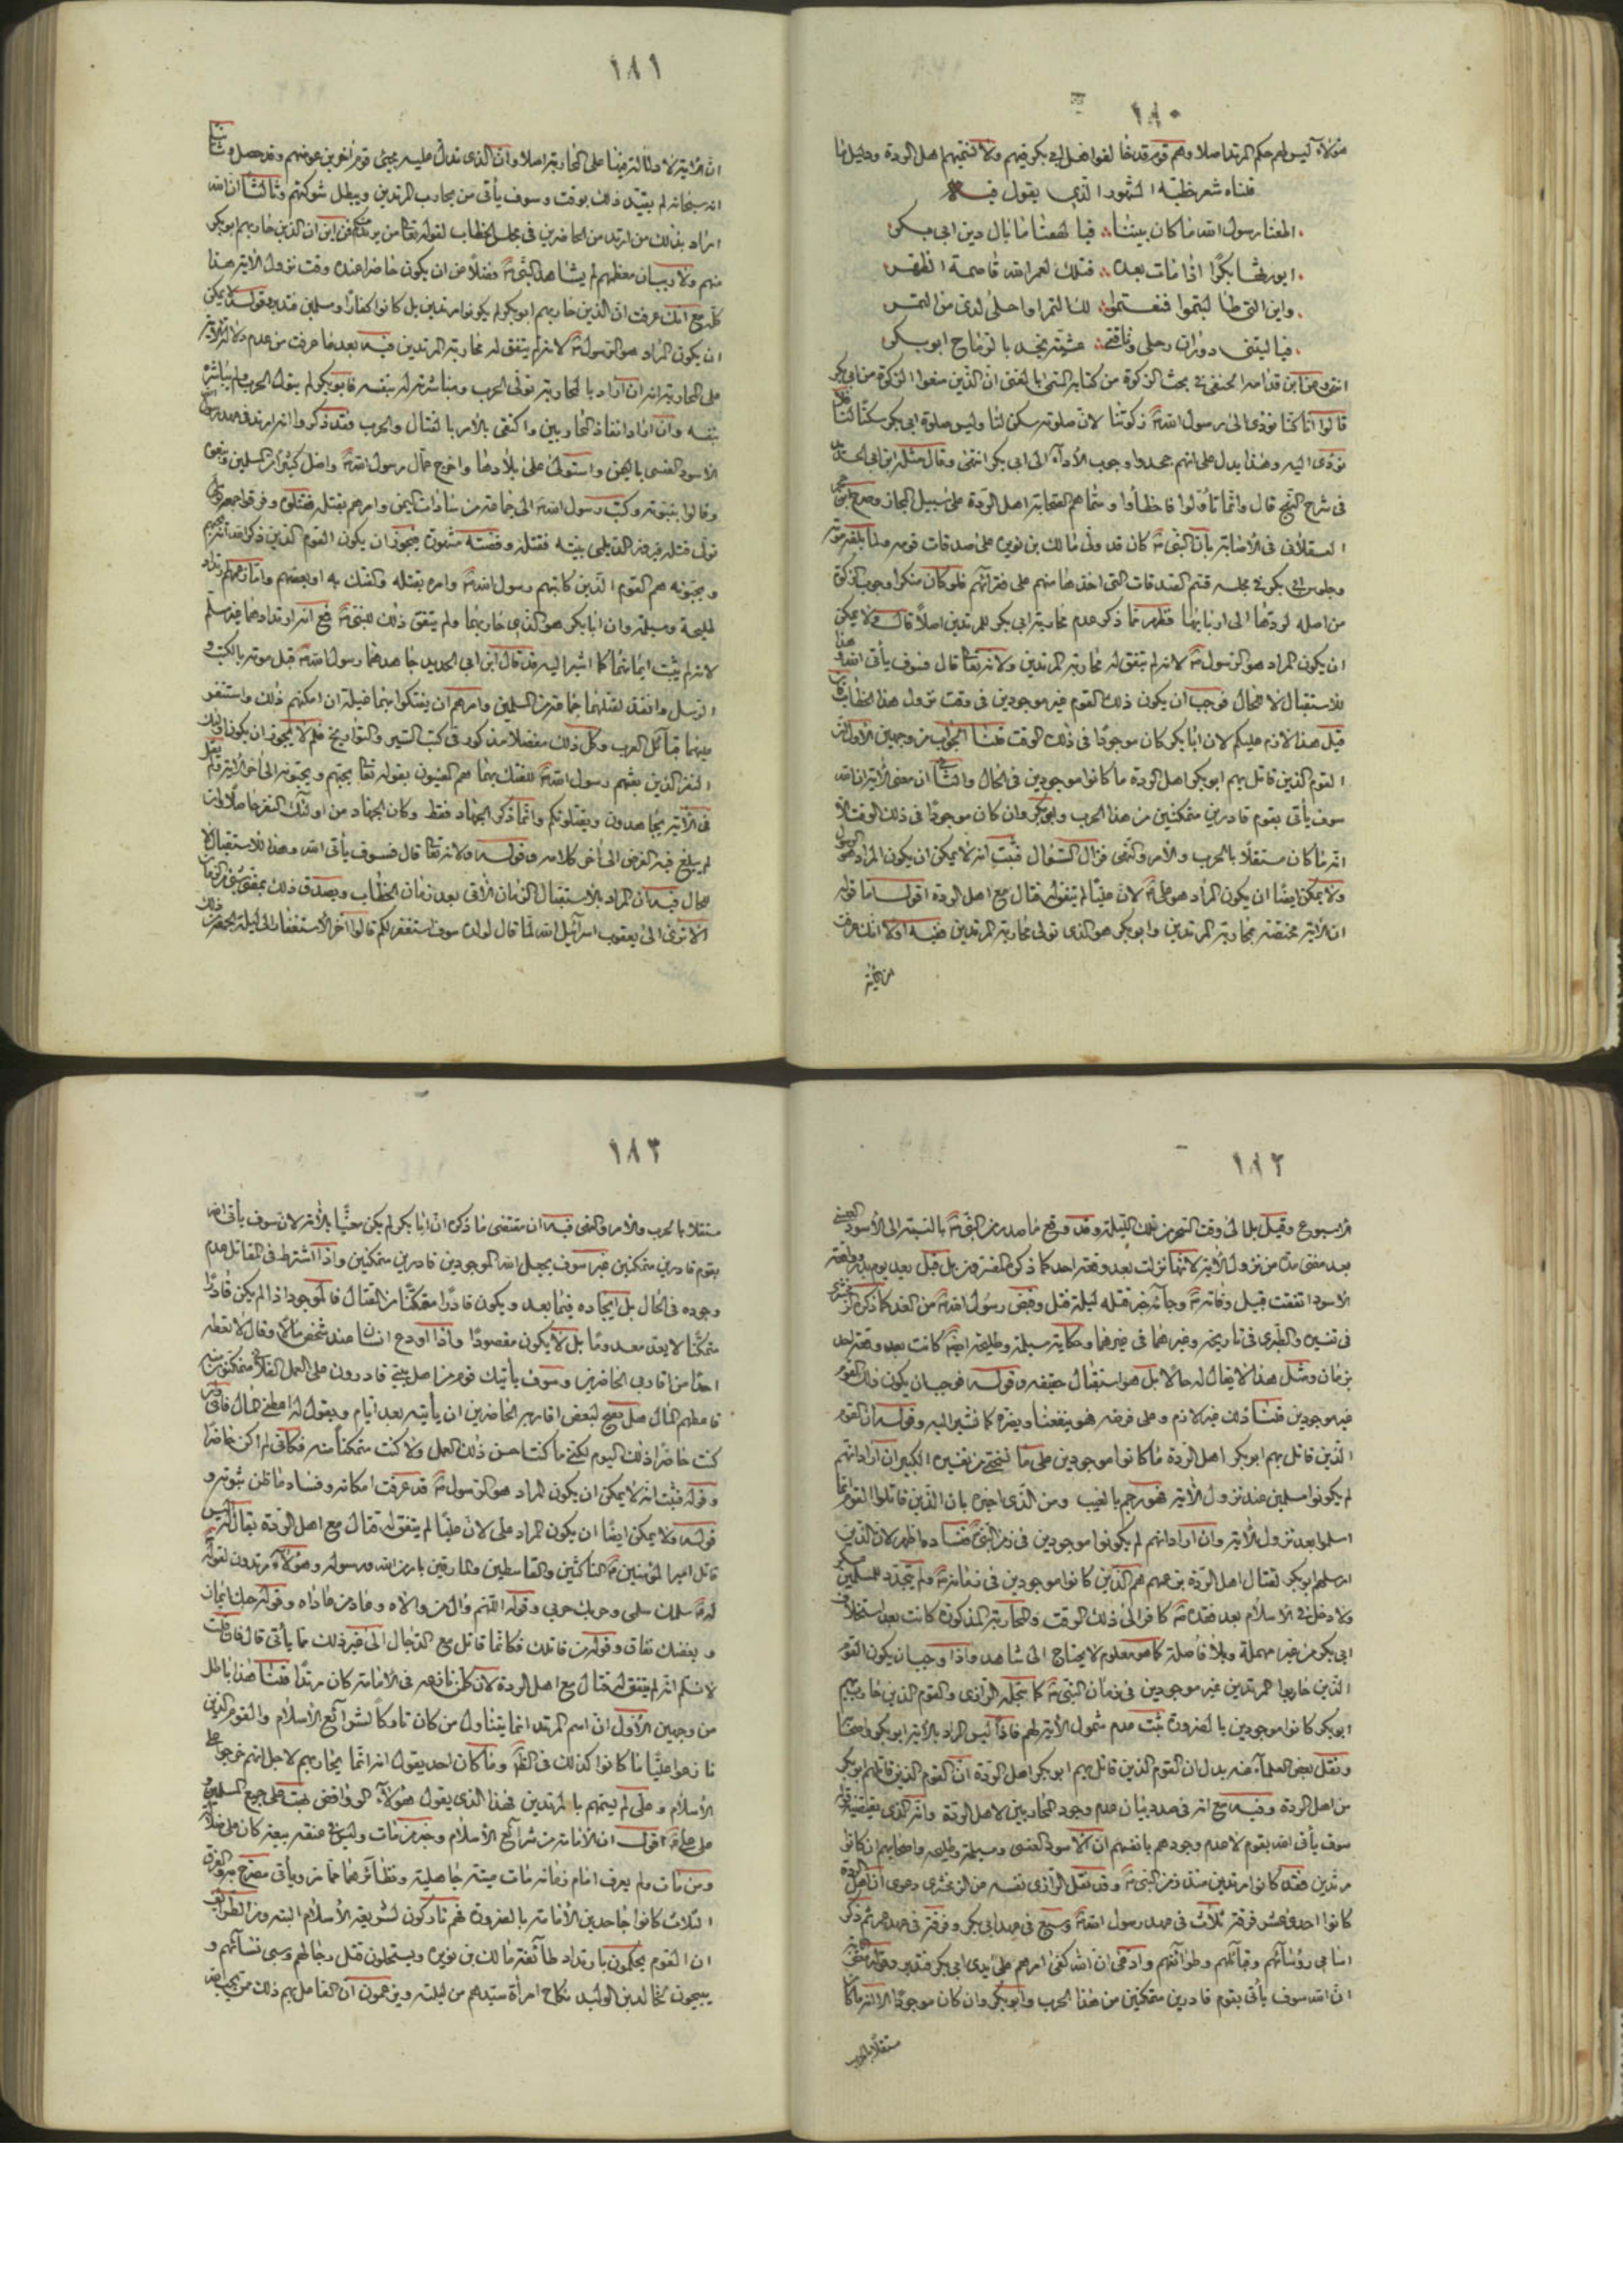 ١٨٠
هؤلاء ليس لهم حكم المرتد اصلا وهم قوم قد خالفوا اهل ابي بكر فيهم ولا نسميهم اهل الردة ودليل ما
قلناه شعر خطبه المشهور الذي يقول فيه
اطعنا رسول الله ما كان بيننا فيا لهفنا ما بال دين ابي بكر
ايورثها بكرا اذا مات بعده فتلك لعمر الله قاصمة الظهر
وان التي طالبتموا فمنعتموا لك التمر او احلى لدى من التمر
فيا ليتني دوران رحلي وناقتي عشية نجد بالرماح ابو بكر
قالوا انا كنا نؤدي الى رسول الله زكوتنا لان صلوته سكن لنا وليس صلوة ابي بكر سكنا لنا
نؤدي اليه وهذا يدل على انهم جحدوا وجوب الأداء الى ابي بكر انتهى وقال مثله ابن ابي الحديد
في شرح النهج قال وانما تاولوا فاخطأوا وسماهم الصحابة اهل الردة على سبيل المجاز
العسقلاني في الاصابة بأن النبي كان قد ولى مالك بن نويرة على صدقات قومه ولما بلغه موته
وجلوس ابي بكر في مجلسه قسم الصدقات التي اخذها منهم على فقرائهم فلو كان منكرا وجوب الزكوة
من اصله لردها الى اربابها فظهر مما ذكر عدم محاربة ابي بكر للمرتدين اصلا قال ولا يمكن
ان يكون المراد هو الرسول لانه لم يتفق له محاربة المرتدين ولانه تعالى قال فسوف يأتي الله وهذا
للاستقبال لا للحال فوجب ان يكون ذلك القوم غير موجودين في وقت نزول هذا الخطاب فان
قيل هذا لازم عليكم لان ابا بكر كان موجودا في ذلك الوقت قلنا الجواب من وجهين الأول ان
القوم الذين قاتل بهم ابو بكر اهل الردة ما كانوا موجودين في الحال والثاني ان معنى الآية ان الله
سوف يأتي بقوم قادرين متمكنين من هذا الحرب وابو بكر وان كان موجودا في ذلك الوقت الا
انه ما كان مستقلا بالحرب والأمر والنهي فزال السؤال فثبت انه لا يمكن ان يكون المراد هو الرسول
ولا يمكن ايضا ان يكون المراد هو علي لان عليا لم يتفق له قتال مع اهل الردة اقول اما قوله
ان الآية مختصة بمحاربة المرتدين وابو بكر هو الذي تولى محاربة المرتدين ففيه اولا انك عرفت
١٨١
ان الآية لا دلالة فيها على المحاربة اصلا وان الذي تدل عليه يجيئ قوم آخرين عوضهم وقد حصل وثانيا
انه سبحانه لم يقيد ذلك بوقت وسوف يأتي من يحارب المرتدين ويبطل شوكتهم وثالثا ان الله
اراد بذلك من ارتد من الحاضرين في مجلس الخطاب لقوله تعالى من يرتد منكم فمن اين ان الذين حاربهم ابو بكر
منهم ولا ريب ان معظمهم لم يشاهد النبي فضلا من ان يكون حاضرا عنده وقت نزول الآية هذا
كله مع انك عرفت ان الذين حاربهم ابو بكر لم يكونوا مرتدين بل كانوا كفارا ومسلمين فتدبر وقوله ولا يمكن
ان يكون المراد هو الرسول لانه لم يتفق له محاربة المرتدين فيه بعد ما عرفت من عدم دلالة الآية
على المحاربة انه ان اراد بالمحاربة تولي الحرب ومباشرته له بنفسه فابو بكر لم يتول الحرب ولم يباشره
بنفسه وان اراد انفاذ المحاربين واكتفى بالأمر بالقتال والحرب فقد ذكروا انه ارتد في عهد رسول الله
الاسود العنسي باليمن واستولى على بلادها واخرج عمال رسول الله واضل كثيرا من المسلمين
وكتب رسول الله الى جماعة من سادات اليمن وامرهم بقتله فقتلوه وفرقوا جمعه
تولى قتله فيروز الديلمي بيته فقتله وقصته مشهورة فيجوز ان يكون القوم الذين ذكر الله انه يحبهم
ويحبونه هم القوم الذين كاتبهم رسول الله وامره بقتله والفتك به او بعضهم واما زعمهم
طليحة ومسيلمة وان ابا بكر هو الذي حاربهما ولم يتفق ذلك للنبي فمع انه ارتدادهما غير مسلم
لانه لم يثبت ايمانهما كما اشير اليه قد قال ابن ابي الحديد جاهدهما رسول الله قبل موته بالكتب و
الرسل وانفذ لقتلهما جماعة من المسلمين وامرهم ان يفتكوا بهما غيلة ان امكنهم ذلك واستنفر
عليهما قبائل العرب وكل ذلك مفصلا مذكور في كتب السير والتواريخ فلم لا يجوز ان يكونوا اولئك
النفر الذين بعثهم رسول الله للفتك بهما هم المعنيون بقوله تعالى يحبهم ويحبونه الى آخر الآية ولم يقل
في الآية يجاهدون ويقتلونكم وانما ذكر الجهاد فقط وكان الجهاد من اولئك النفر حاصلا وان
لم يبلغ فيه الغرض الى آخر كلامه وقوله ولانه تعالى قال فسوف يأتي الله وهذا للاستقبال لا
للحال فيه ان المراد بالاستقبال الزمان الآتي بعد زمان الخطاب
الا ترى الى يعقوب اسرائيل الله لما قال لولده سوف استغفر لكم قالوا أخر الاستغفار الى ليلة الجمعة
١٨٢
الاسبوع وقيل بل الى وقت السحر من تلك الليلة وقد وقع ما صدر من النبي بالنسبة الى الأسود العنسي
بعد مضي مدة من نزول الآية لانها نزلت بعد وقعة احد كما ذكره المفسرون بل قيل بعد يوم بدر وواقعة
الاسود اتفقت قبيل وفاته وجاء خبر قتله ليلة قتل وقبض رسول الله من الغد كما ذكره الزمخشري
في تفسيره والطبري في تاريخه وغيرهما في غيرهما وحكاية مسيلمة وطليحة ايضا كانت بعد وقعة احد
بزمان ومثل هذا لا يقال له حالا بل هو استقبال حقيقة وقوله فوجب ان يكون ذلك القوم
غير موجودين قلنا ذلك غير لازم وعلى فرضه فهو ينفعنا ويضره كما نشير اليه وقوله ان القوم
الذين قاتل بهم ابو بكر اهل الردة ما كانوا موجودين على ما في تفسيره الكبير ان اراد انهم
لم يكونوا مسلمين عند نزول الآية فهو رجم بالغيب ومن الذي اخبره بان الذين قاتلوا القوم انما
اسلموا بعد نزول الآية وان اراد انهم لم يكونوا موجودين في زمن النبي ففساده ظاهر لان الذين
ارسلهم ابو بكر لقتال اهل الردة بزعمهم هم الذين كانوا موجودين في زمانه ولم يتجدد للمسلمين عسكر
ولا دخل في الاسلام بعد فقده كافر الى ذلك الوقت والمحاربة المذكورة كانت بعد استخلاف
ابي بكر من غير مهملة وبلا فاصلة كما هو معلوم لا يحتاج الى شاهد واذا وجب ان يكون القوم
الذين حاربوا المرتدين غير موجودين في زمان النبي كما تخيله الرازي والقوم الذين حاربهم
ابو بكر كانوا موجودين بالضرورة ثبت عدم شمول الآية لهم فاذا ليس المراد بالآية ابو بكر واصحابه
ونقل بعض العلماء عنه بدل ان القوم الذين قاتل بهم ابو بكر اهل الردة ان القوم الذين قاتلهم ابو بكر
من اهل الردة وفيه مع انه في صدد بيان عدم وجود المحاربين لاهل الردة وانه الذي يقتضيه قوله
سوف يأتي الله بقوم لا عدم وجودهم بانفسهم ان الاسود العنسي ومسيلمة وطليحة واصحابهم ان كانوا
مرتدين فقد كانوا مرتدين منذ زمن النبي وقد نقل الرازي نفسه عن الزمخشري دعوى ان اهل الردة
كانوا احدى عشر فرقة ثلاث في عهد رسول الله وسبع في عهد ابي بكر وفرقة في عهد عمر ثم ذكر
اسامي رؤسائهم وقبائلهم وطوائفهم وادعى ان الله كفى امرهم على يدي ابي بكر فتدبر وقوله
ان الله سوف يأتي بقوم قادرين متمكنين من هذا الحرب وابو بكر وان كان موجودا الا انه ما كان
مستقلا بالحرب
١٨٣
مستقلا بالحرب والأمر والنهي فيه ان مقتضى ما ذكره ان ابا بكر لم يكن معنيا بالآية لان سوف يأتي الله
بقوم قادرين متمكنين غير سوف يجعل الله الموجودين قادرين متمكنين واذا اشترط في المقاتل عدم
وجوده في الحال بل ايجاده فيما بعد ويكون قادرا متمكنا من القتال فالموجود اذا لم يكن قادرا
متمكنا لا يعد معدوما بل لا يكون مقصودا واذا اودع انسان عند شخص مالا وقال لا تعطه
احدا من اقاربي الحاضرين وسوف يأتيك قوم من اهل بيتي قادرون على العمل الفلاني متمكنون منه
فاعطهم المال هل يصح لبعض اقاربه الحاضرين ان يأتيه بعد ايام ويقول له اعطني المال فاني وان
كنت حاضرا ذلك اليوم لكني ما كنت احسن ذلك العمل ولا كنت متمكنا منه فكأني لم اكن حاضرا
وقوله فثبت انه لا يمكن ان يكون المراد هو الرسول قد عرفت امكانه وفساد ما ظن ثبوته و
قوله ولا يمكن ايضا ان يكون المراد علي لان عليا لم يتفق له قتال مع اهل الردة يقال له اليس
قاتل امير المؤمنين الناكثين والقاسطين والمارقين بامر من الله ورسوله وهؤلاء مرتدون لقوله
له سلمك سلمي وحربك حربي وقوله اللهم وال من والاه وعاد من عاداه وقوله حبك ايمان
وبغضك نفاق وقوله من قاتلك فكانما قاتل مع الدجال الى غير ذلك مما يأتي قال فان قلت
لا نسلم انه لم يتفق له قتال مع اهل الردة لان كل من نازعه في الامامة كان مرتدا قلنا هذا باطل
من وجهين الأول ان اسم المرتد انما يتناول من كان تاركا لشرائع الاسلام والقوم الذين
نازعوا عليا ما كانوا كذلك في الظاهر وما كان احد يقول انه انما يحاربهم لاجل انهم خرجوا عن
الاسلام وعلي لم يسمهم بالمرتدين فهذا الذي يقول هؤلاء الروافض بهت على جميع المسلمين
وعلى علي اقول ان الامامة من شرائع الاسلام وخبر من مات وليس في عنقه بيعة
ومن مات ولم يعرف امام زمانه مات ميتة جاهلية ونظائرهما مما مر ويأتي
الثلاث كانوا جاحدين الامامة بالضرورة فهم تاركون لشريعة الاسلام البتة ومن الطرائف
ان القوم يحكمون بارتداد طائفة مالك بن نويرة ويستحلون قتل رجالهم وسبي نسائهم و
يبيحون لخالد بن الوليد نكاح امرأة سيدهم من ليلته ويزعمون ان الفاعل بهم ذلك ممن يحبه الله